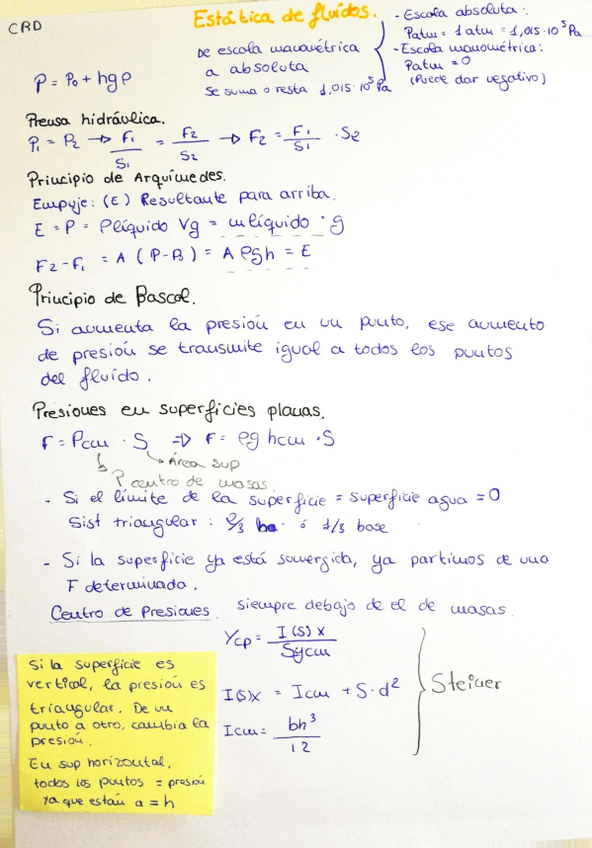 CRD
Estática de fluídos.
P = P0 + hgρ
De escala manométrica
a absoluta
Se suma o resta 1,015·10^5 Pa
- Escala absoluta:
Patm = 1 atm = 1,015·10^5 Pa
- Escala manométrica:
Patm = 0
(Puede dar negativo)
Prensa hidráulica.
P1 = P2 → F1/S1 = F2/S2 → F2 = F1/S1 · S2
Principio de Arquímedes.
Empuje: (E) Resultante para arriba.
E = P = ρlíquido Vg = mlíquido · g
F2 - F1 = A (P - P0) = A ρgh = E
Principio de Pascal.
Si aumenta la presión en un punto, ese aumento
de presión se transmite igual a todos los puntos
del fluído.
Presiones en superficies planas.
F = Pcm · S ⇒ F = ρg hcm · S
Área sup
P centro de masas
- Si el límite de la superficie = superficie agua = 0
Sist triangular: 2/3 ó 1/3 base
- Si la superficie ya está sumergida, ya partimos de una
F determinada.
Centro de Presiones. siempre debajo de el de masas.
Ycp = I(S)x / Sycm
I(S)x = Icm + S·d²
Icm = bh³ / 12
Steiner
Si la superficie es
vertical, la presión es
triangular. De un
punto a otro, cambia la
presión.
En sup horizontal,
todos los puntos = presión
ya que están a = h